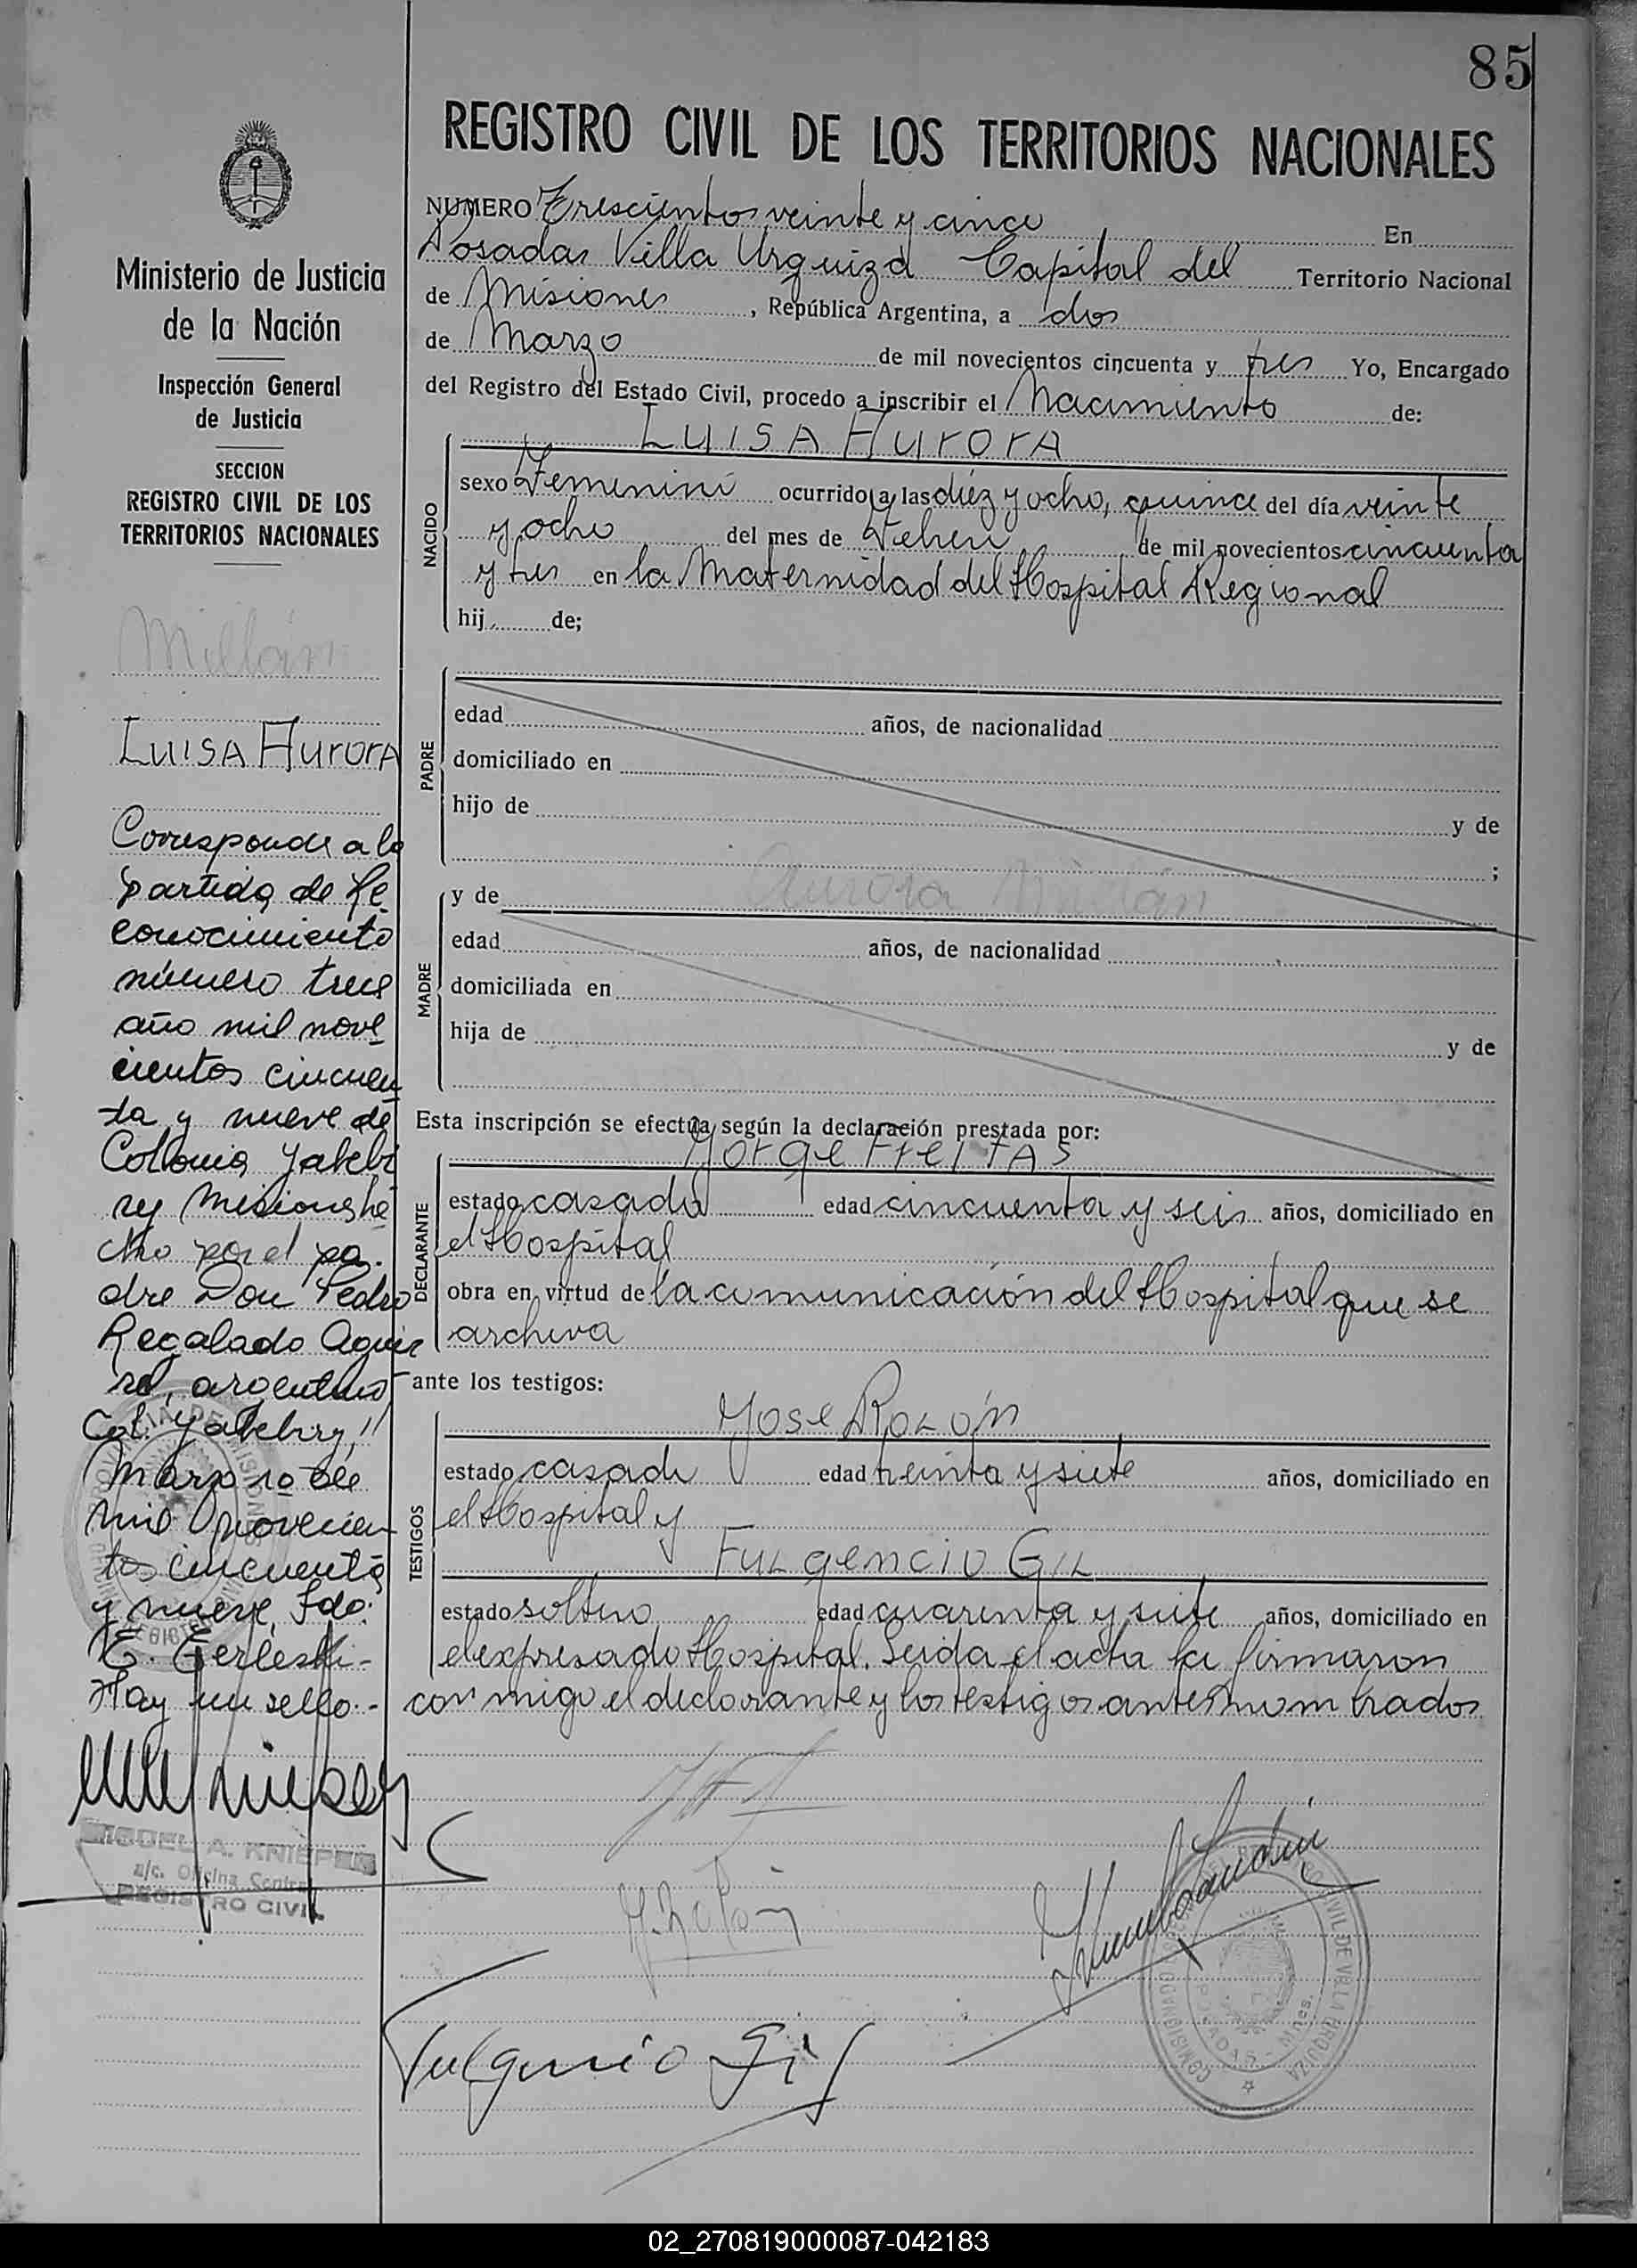 85
REGISTRO CIVIL DE LOS TERRITORIOS NACIONALES
NUMERO Trescientos veinte y cinco En
Posadas Villa Urquiza Capital del Territorio Nacional
de Misiones, República Argentina, a dos
de Marzo de mil novecientos cincuenta y tres Yo, Encargado
del Registro del Estado Civil, procedo a inscribir el Nacimiento de:
LUISA AurorA
NACIDO
sexo Femenino ocurrido a las diéz y ocho, quince del día veinte
y ocho del mes de Febrero de mil novecientos cincuenta
y tres en la Maternidad del Hospital Regional
hij de;
PADRE
edad años, de nacionalidad
domiciliado en
hijo de y de
;
MADRE
y de Aurora Millán
edad años, de nacionalidad
domiciliada en
hija de y de
Esta inscripción se efectúa según la declaración prestada por:
DECLARANTE
Jorge FreitAs
estado casado edad cincuenta y seis años, domiciliado en
el Hospital
obra en virtud de la comunicación del Hospital que se
archiva
ante los testigos:
TESTIGOS
José RoLón
estado casado edad treinta y siete años, domiciliado en
el Hospital y
FuLgencio GiL
estado soltero edad cuarenta y siete años, domiciliado en
el expresado Hospital. Leida el acta la firmaron
conmigo el declarante y los testigos antes nombrados
J. Rolón
Fulgencio Gil
COMISIONADO REGISTRO CIVIL DE VILLA URQUIZA
POSADAS - Mnes.
Ministerio de Justicia
de la Nación
Inspección General
de Justicia
SECCION
REGISTRO CIVIL DE LOS
TERRITORIOS NACIONALES
Millán
LuisA AurorA
Corresponde a la
partida de Re
conocimiento
número trece
año mil nove
cientos cincuen
ta y nueve de
Colonia Yabebi
ry Misiones he
cho por el pa
dre Don Pedro
Regalado Aguir
re, argentino
Col. Yabebiry,
Marzo 10 de
mil novecien
tos cincuenta
y nueve, Fdo:
Hay un sello.-
MIGUEL A. KNIEPER
a/c. Oficina Central
REGISTRO CIVIL
02_270819000087-042183